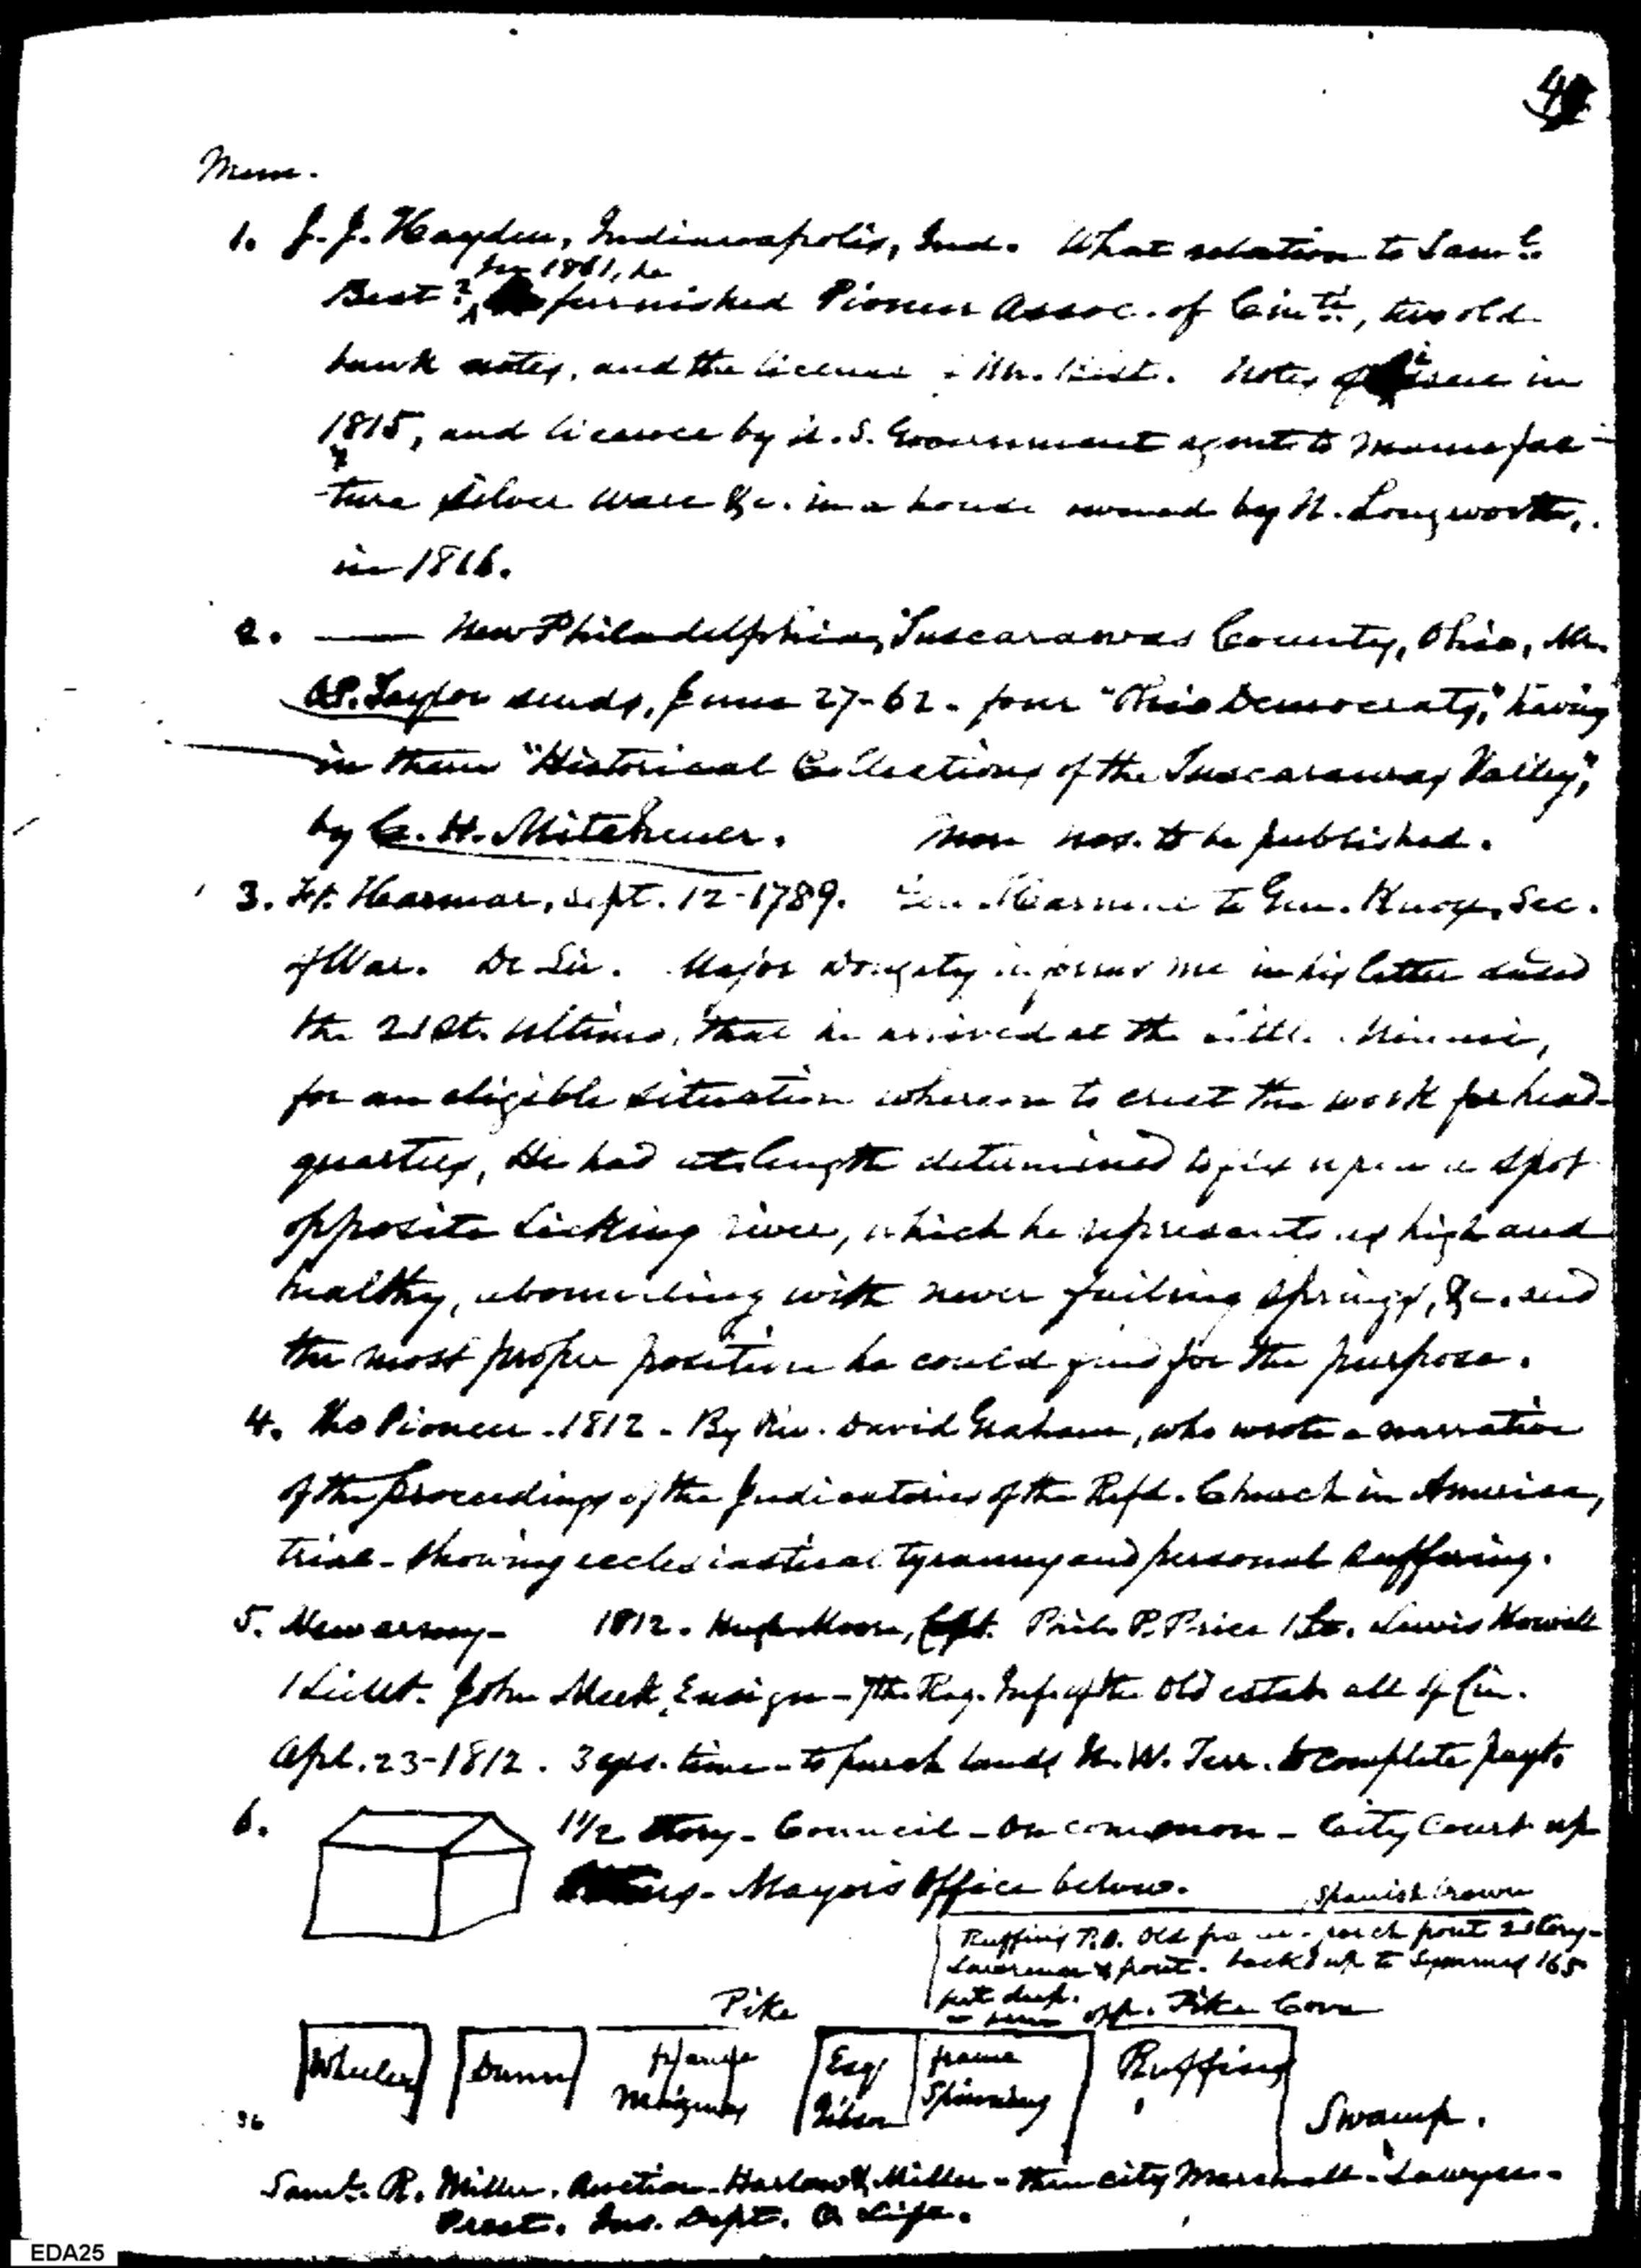 4
Mem.
1. J. J. Hayden, Indianapolis, Ind. What relation to Saml.
In 1861, he
Best? furnished Pioneer Assoc. of Cinti., two old
bank notes, and the license Mr. Best. Notes issue in
1815, and licence by U. S. Government agent to manufac-
-ture silver ware &c. in a house owned by N. Longworth,
in 1816.
2. — New Philadelphia, Tuscarawas County, Ohio, Mr.
Taylor sends, June 27-62. four "Ohio Democrats," having
in them "Historical Collections of the Tuscarawas Valley",
by C. H. Mitchener. nos. to be published.
3. Ft. Harmar, Sept. 12-1789. Gen. Harmar to Gen. Knox, Sec.
of War. Dr Sir. Major Doughty informs me in his letter dated
the 21st. ultimo, that he arrived at the Little Miami,
for an eligible situation whereon to erect the work for head-
quarters, He had at length determined to fix upon a spot
opposite Licking river, which he represents as high and
healthy, abounding with never failing springs, &c. and
the most proper position he could find for the purpose.
4. The Pioneer. 1812. By Rev. David Graham, who wrote a narrative
of the proceedings of the Judicatories of the Refd. Church in America,
trial - showing ecclesiastical tyranny and personal suffering.
5. New army- 1812. Hugh Moore, Capt. Philo P. Price 1 Lt. Lewis Howell
1 Lieut. John Meek, Ensign - 7th. Reg. Inf. of the old estab. all of Cin.
Apl. 23-1812. 3 yrs. time - to purch lands N. W. Terr. to complete payt.
6. 1 1/2 story - Council - on common - City Court up
Mayor's Office below.
Spanish brown
Ruffin's P.O. Old frame - porch front 2 story -
Lawrence front. back up to Symmes 165
feet deep.
opp. Pike Cove
Pike
Wheeler Dunn Esq Gibson frame Spinning Ruffin's
Swamp.
36
Saml. R. Miller. Auction - Harlow & Miller - then city Marshall - Lawyer -
Prest. Ins. Dept. O. Life.
EDA25